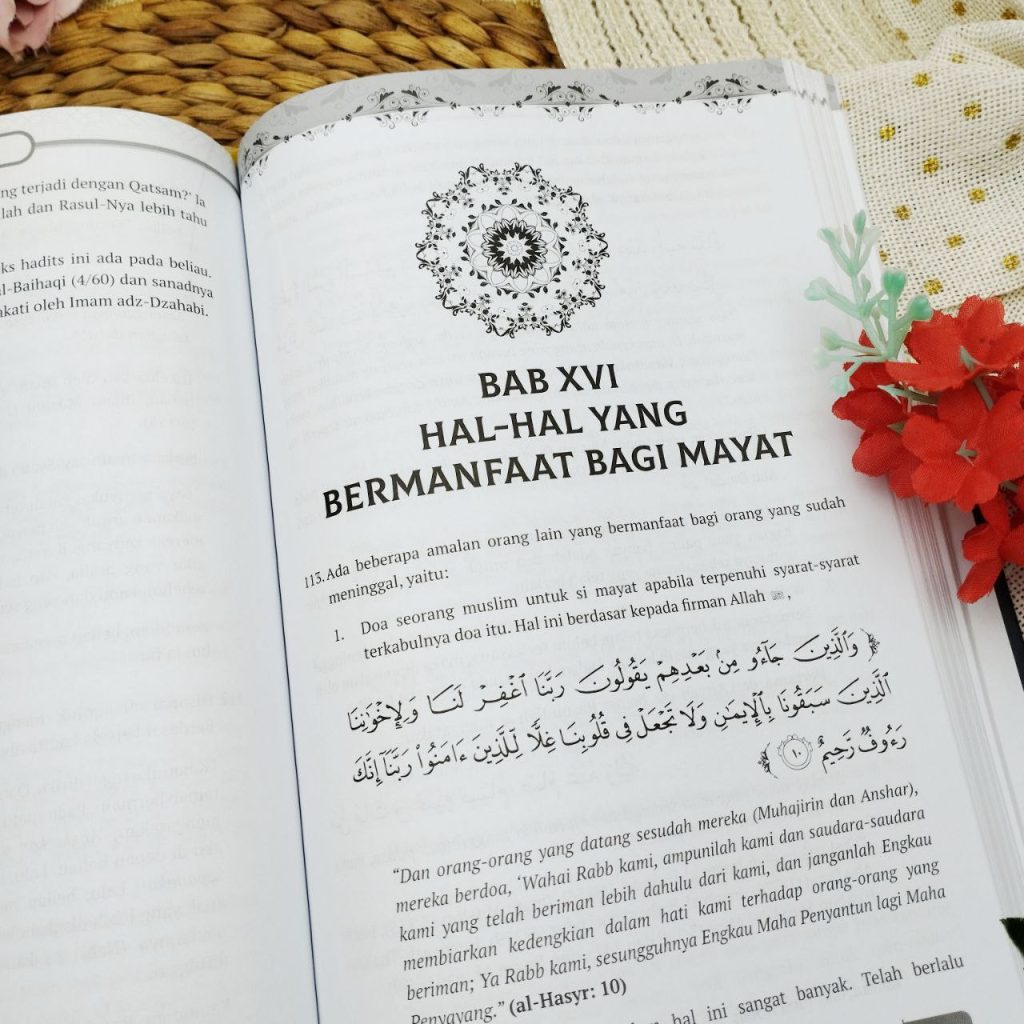 ng terjadi dengan Qatsam?' Ia
lah dan Rasul-Nya lebih tahu
ks hadits ini ada pada beliau.
l-Baihaqi (4/60) dan sanadnya
kati oleh Imam adz-Dzahabi.
BAB XVI
HAL-HAL YANG
BERMANFAAT BAGI MAYAT
113. Ada beberapa amalan orang lain yang bermanfaat bagi orang yang sudah
meninggal, yaitu:
1. Doa seorang muslim untuk si mayat apabila terpenuhi syarat-syarat
terkabulnya doa itu. Hal ini berdasar kepada firman Allah ﷻ,
﴿ وَٱلَّذِينَ جَآءُو مِنۢ بَعْدِهِمْ يَقُولُونَ رَبَّنَا ٱغْفِرْ لَنَا وَلِإِخْوَٰنِنَا
ٱلَّذِينَ سَبَقُونَا بِٱلْإِيمَٰنِ وَلَا تَجْعَلْ فِى قُلُوبِنَا غِلًّا لِّلَّذِينَ ءَامَنُوا۟ رَبَّنَآ إِنَّكَ
رَءُوفٌ رَّحِيمٌ ١٠ ﴾
“Dan orang-orang yang datang sesudah mereka (Muhajirin dan Anshar),
mereka berdoa, ‘Wahai Rabb kami, ampunilah kami dan saudara-saudara
kami yang telah beriman lebih dahulu dari kami, dan janganlah Engkau
membiarkan kedengkian dalam hati kami terhadap orang-orang yang
beriman; Ya Rabb kami, sesungguhnya Engkau Maha Penyantun lagi Maha
Penyayang.” (al-Hasyr: 10)
hal ini sangat banyak. Telah berlalu